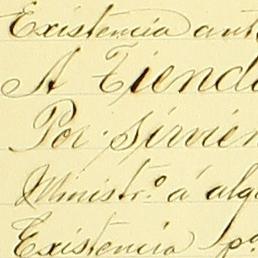 Existencia ant
A Tiend
Por sirvien
Ministr.º á alg
Existencia pª